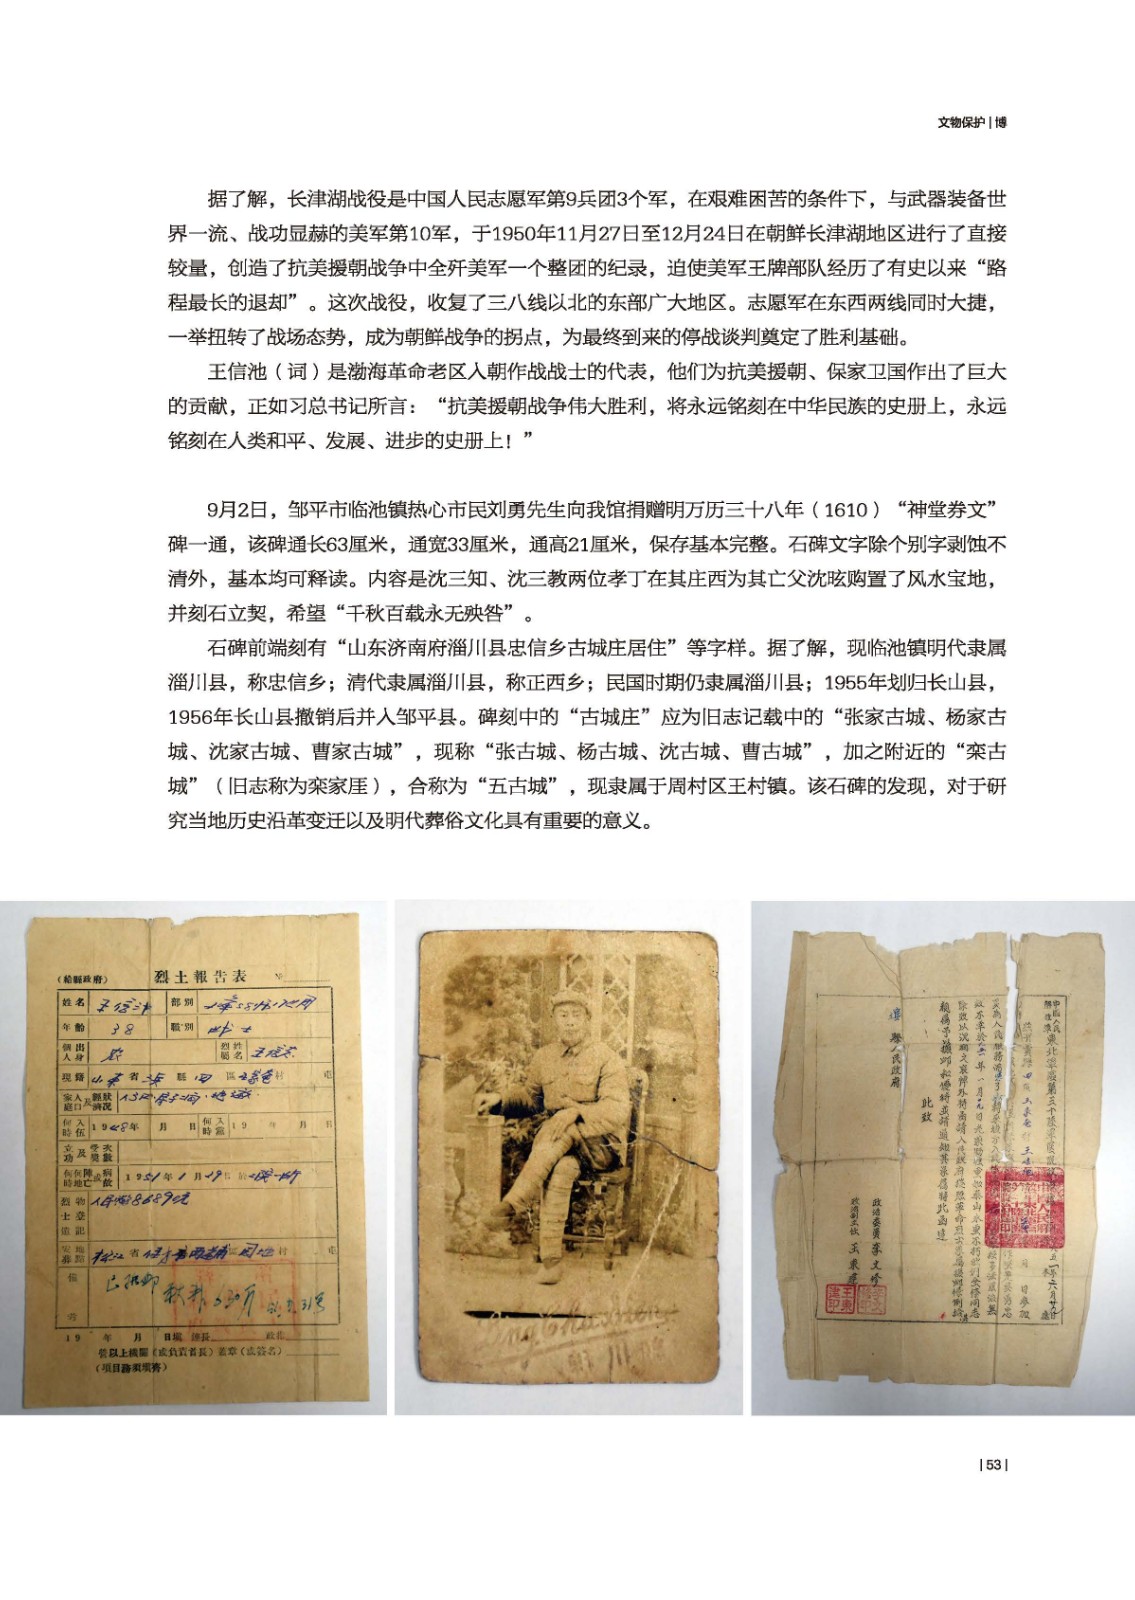 文物保护 | 博
据了解，长津湖战役是中国人民志愿军第9兵团3个军，在艰难困苦的条件下，与武器装备世
界一流、战功显赫的美军第10军，于1950年11月27日至12月24日在朝鲜长津湖地区进行了直接
较量，创造了抗美援朝战争中全歼美军一个整团的纪录，迫使美军王牌部队经历了有史以来“路
程最长的退却”。这次战役，收复了三八线以北的东部广大地区。志愿军在东西两线同时大捷，
一举扭转了战场态势，成为朝鲜战争的拐点，为最终到来的停战谈判奠定了胜利基础。
王信池（词）是渤海革命老区入朝作战战士的代表，他们为抗美援朝、保家卫国作出了巨大
的贡献，正如习总书记所言：“抗美援朝战争伟大胜利，将永远铭刻在中华民族的史册上，永远
铭刻在人类和平、发展、进步的史册上！”
9月2日，邹平市临池镇热心市民刘勇先生向我馆捐赠明万历三十八年（1610）“神堂券文”
碑一通，该碑通长63厘米，通宽33厘米，通高21厘米，保存基本完整。石碑文字除个别字剥蚀不
清外，基本均可释读。内容是沈三知、沈三教两位孝丁在其庄西为其亡父沈昡购置了风水宝地，
并刻石立契，希望“千秋百载永无殃咎”。
石碑前端刻有“山东济南府淄川县忠信乡古城庄居住”等字样。据了解，现临池镇明代隶属
淄川县，称忠信乡；清代隶属淄川县，称正西乡；民国时期仍隶属淄川县；1955年划归长山县，
1956年长山县撤销后并入邹平县。碑刻中的“古城庄”应为旧志记载中的“张家古城、杨家古
城、沈家古城、曹家古城”，现称“张古城、杨古城、沈古城、曹古城”，加之附近的“栾古
城”（旧志称为栾家厓），合称为“五古城”，现隶属于周村区王村镇。该石碑的发现，对于研
究当地历史沿革变迁以及明代葬俗文化具有重要的意义。
烈士報告表
姓名
部別
年齡 38
職別 战士
現籍 山東省 縣 四區 村
1948年 月 日
立功及受獎次數
1951年1月19日
19 年 月 日填
(項目務須填齊)
縣人民政府
此致
政治委員 李文修
| 53 |